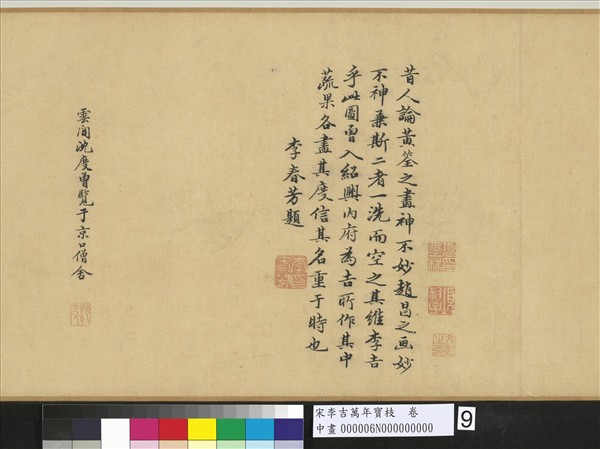 昔人論黃筌之畫神不妙趙昌之画妙
不神兼斯二者一洗而空之其維李吉
乎此圖曾入紹興內府為吉所作其中
蔬果各盡其度信其名重于時也
李春芳題
雲間沈度曾覽于京口僧舍
宋李吉萬年寶枝 卷
中畫 000006N000000000
9